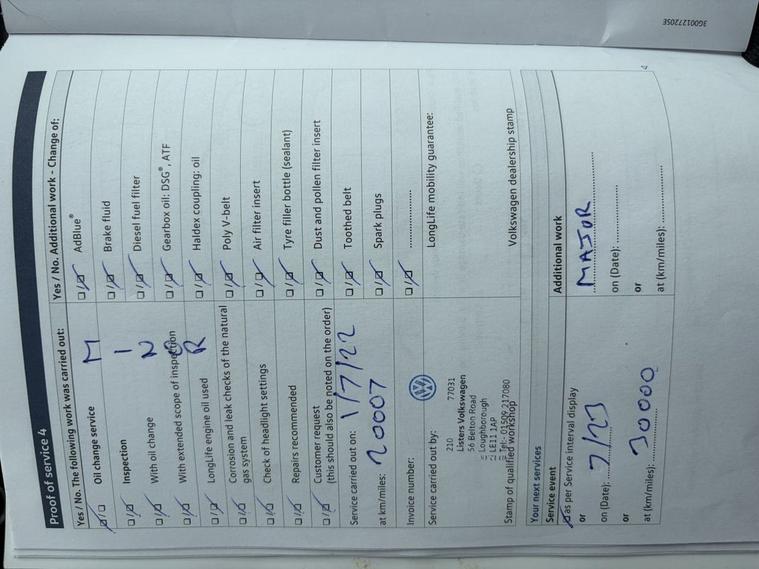 Proof of service 4
Yes / No. The following work was carried out:
Oil change service
Inspection
With oil change
With extended scope of inspection
MINOR
LongLife engine oil used
Corrosion and leak checks of the natural
gas system
Check of headlight settings
Repairs recommended
Customer request
(this should also be noted on the order)
Service carried out on: 1/7/22
at km/miles: 20007
Invoice number:
Service carried out by:
210 77031
Listers Volkswagen
56 Belton Road
Loughborough
LE11 1AP
Tel: 01509 217080
Stamp of qualified workshop
Yes / No. Additional work - Change of:
AdBlue®
Brake fluid
Diesel fuel filter
Gearbox oil: DSG®, ATF
Haldex coupling: oil
Poly V-belt
Air filter insert
Tyre filler bottle (sealant)
Dust and pollen filter insert
Toothed belt
Spark plugs
....................
LongLife mobility guarantee:
Volkswagen dealership stamp
Your next services
Service event
as per Service interval display
or
on (Date): 7/23
or
at (km/miles): 30000
Additional work
MAJOR
on (Date): ....................
or
at (km/miles): ....................
4
3G0012720SE